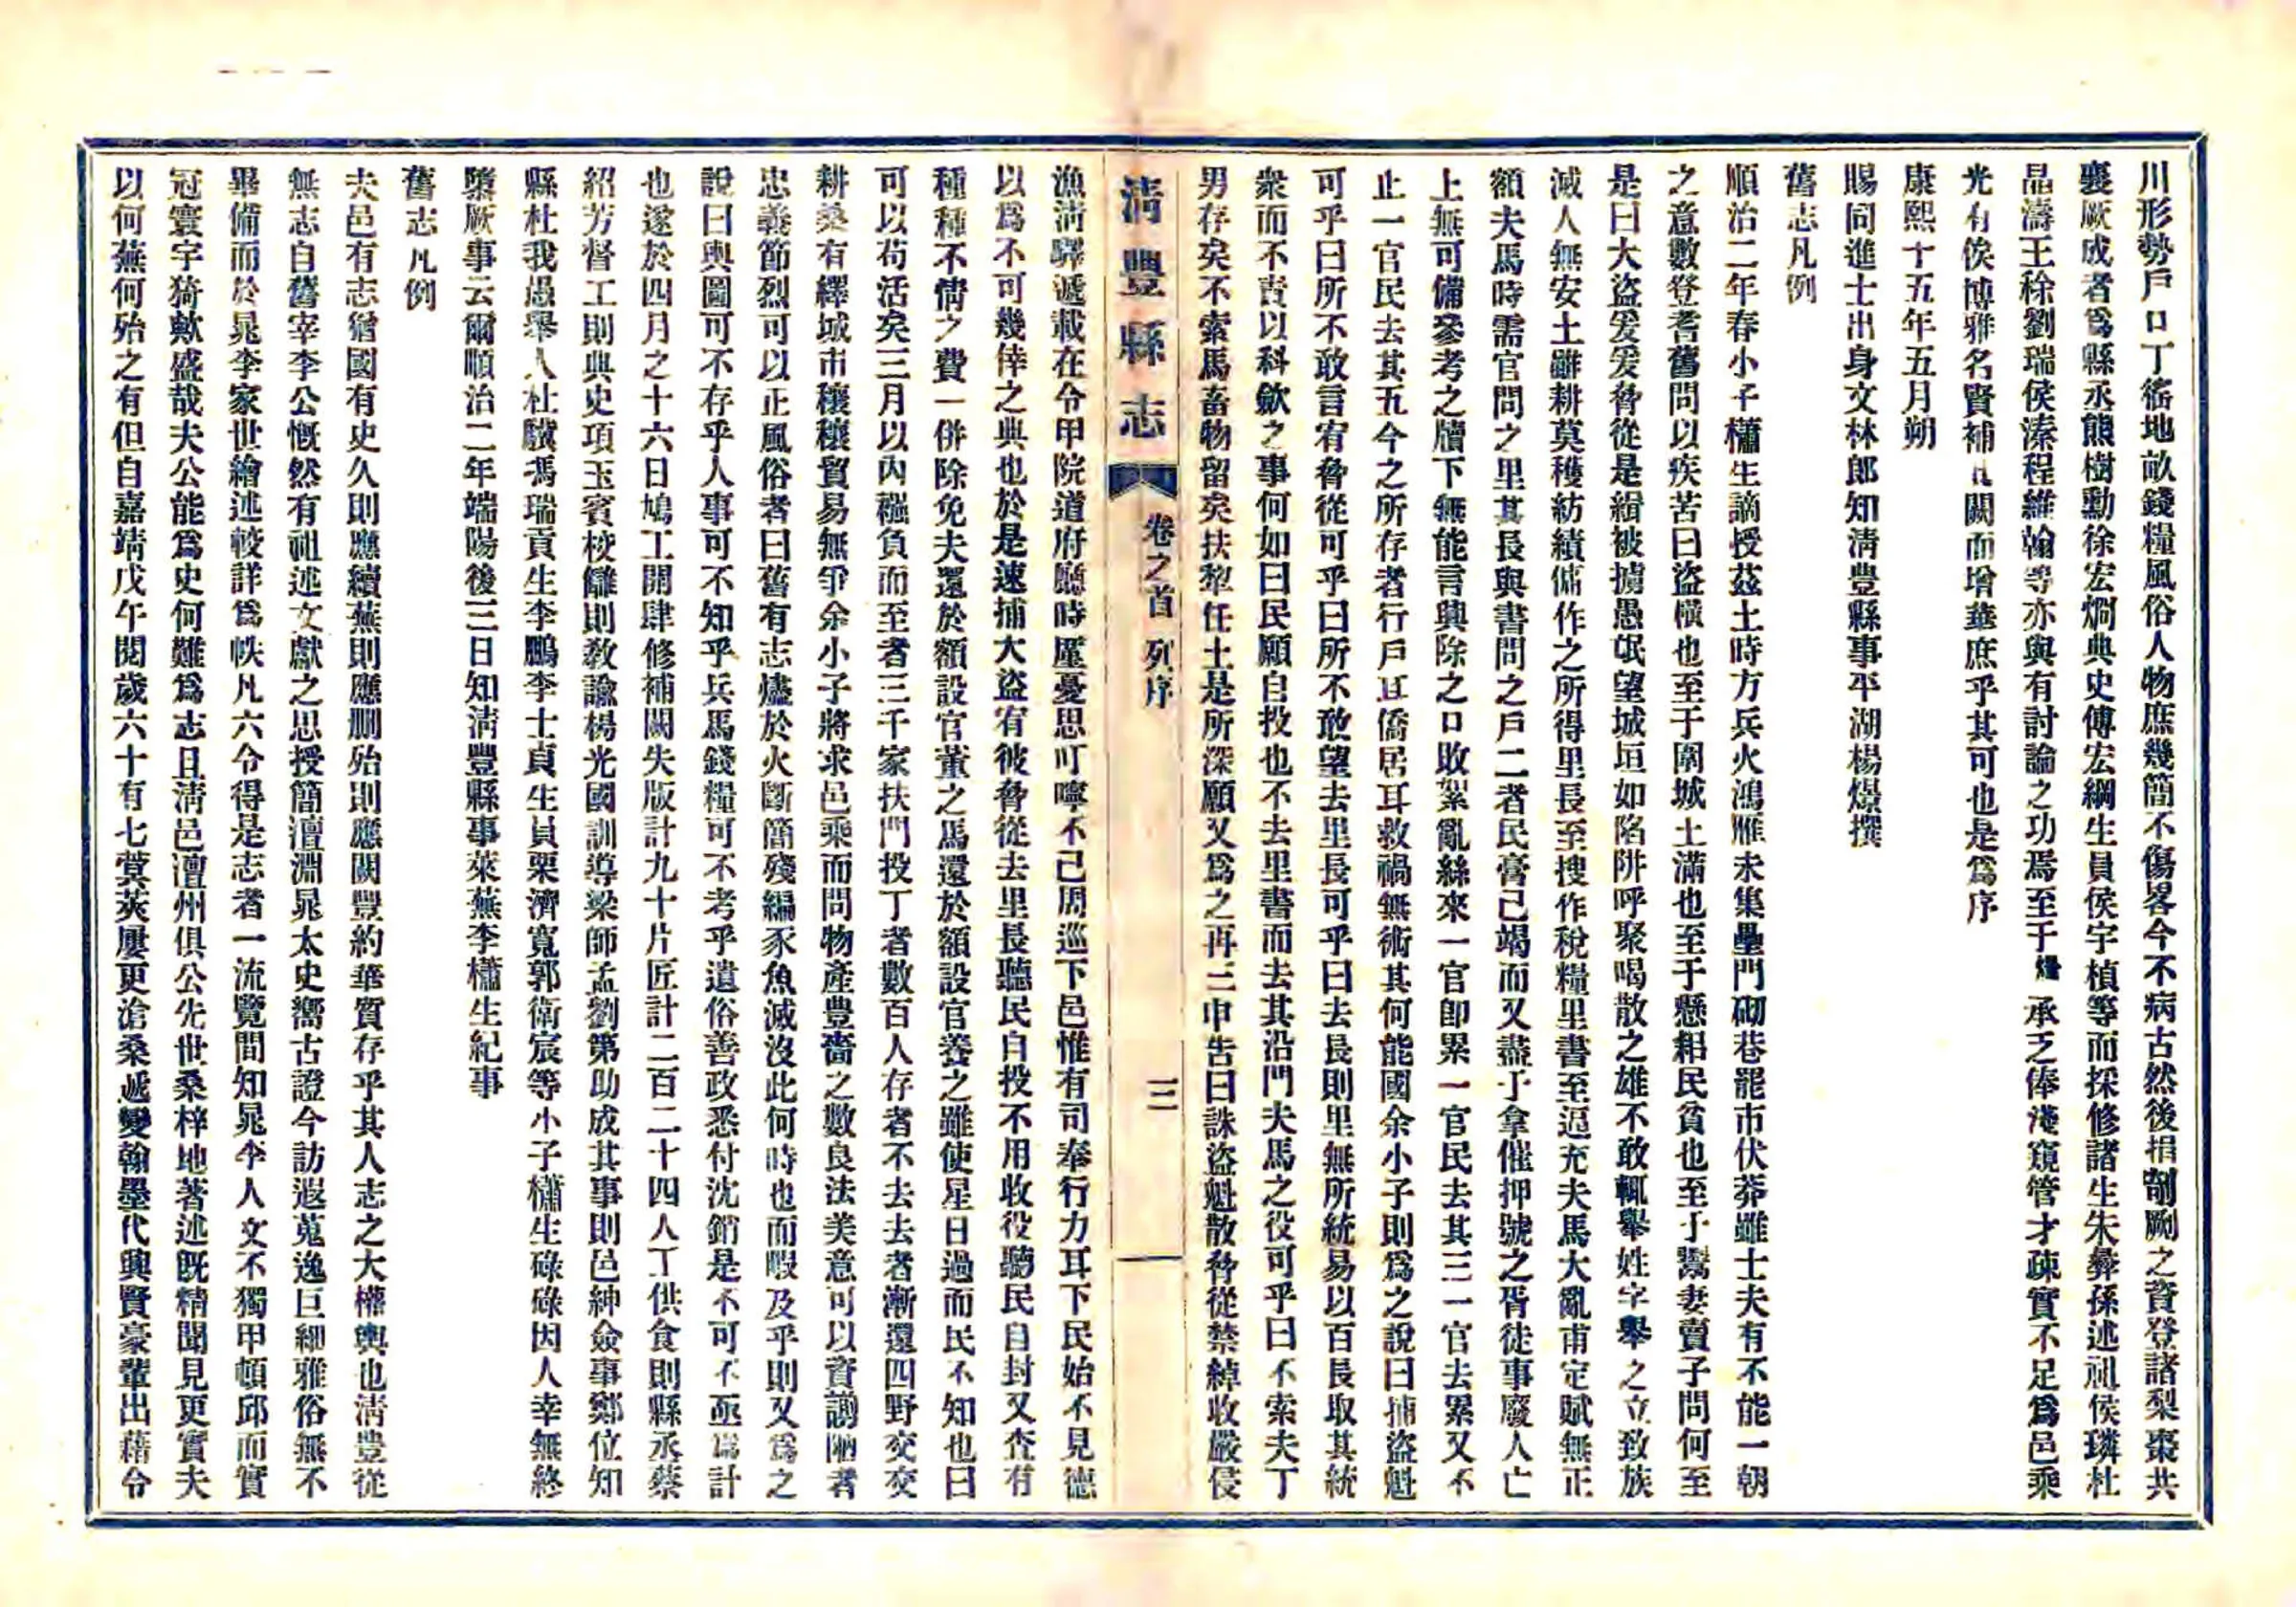 川形勢戶口丁徭地畝錢糧風俗人物庶幾簡不傷畧今不病古然後捐剞劂之資登諸梨棗共
襄厥成者爲縣丞熊樹勳徐宏烱典史傅宏綱生員侯宇楨等而採修諸生朱彝孫述祖侯璘杜
晶濤王稌劉瑞侯溱程維翰等亦與有討論之功焉至于燝承乏俸淺窺管才疎實不足爲邑乘
光有俟博雅名賢補其闕而增華庶乎其可也是爲序
康熙十五年五月朔
賜同進士出身文林郎知清豐縣事平湖楊燝撰
舊志凡例
順治二年春小子櫹生謫授茲土時方兵火鴻雁未集壘門砌巷罷市伏莽雖士夫有不能一朝
之意數登耆舊問以疾苦曰盜橫也至于圍城土滿也至于懸耜民貧也至于鬻妻賣子問何至
是曰大盜爰爰脅從是緝被擄愚氓望城垣如陷阱呼聚喝散之雄不敢輒舉姓字舉之立致族
滅人無安土雖耕莫穫紡績傭作之所得里長至搜作稅糧里書至逼充夫馬大亂甫定賦無正
額夫馬時需官問之里其長與書問之戶二者民膏已竭而又盡于拿催押號之胥徒事廢人亡
上無可備參考之牘下無能言興除之口敗絮亂絲來一官卽累一官民去其三一官去累又不
止一官民去其五今之所存者行戶且僑居耳救禍無術其何能國余小子則爲之說曰捕盜魁
可乎曰所不敢言宥脅從可乎曰所不敢望去里長可乎曰去長則里無所統易以百長取其統
衆而不責以科歛之事何如曰民願自投也不去里書而去其沿門夫馬之役可乎曰不索夫丁
男存矣不索馬畜物留矣扶犂任土是所深願又爲之再三申吿曰誅盜魁散脅從禁綽收嚴侵
清豐縣志 卷之首 列序 三
漁淸驛遞載在令甲院道府廳時厪憂思叮嚀不已周巡下邑惟有司奉行力耳下民始不見德
以爲不可幾倖之典也於是速捕大盜宥彼脅從去里長聽民自投不用收役聽民自封又查有
種種不情之費一併除免夫還於額設官董之馬還於額設官養之雖使星日過而民不知也曰
可以苟活矣三月以內襁負而至者三千家扶門投丁者數百人存者不去去者漸還四野交交
耕桑有繹城市穰穰貿易無爭余小子將求邑乘而問物產豐嗇之數良法美意可以資謝陋者
忠義節烈可以正風俗者曰舊有志燼於火斷簡殘編豕魚滅沒此何時也而暇及乎則又爲之
說曰輿圖可不存乎人事可不知乎兵馬錢糧可不考乎遺俗善政悉付沈銷是不可不亟爲計
也遂於四月之十六日鳩工開肆修補闕失版計九十片匠計二百二十四人丁供食則縣丞蔡
紹芳督工則典史項玉賓校讎則敎諭楊光國訓導梁師孟劉第助成其事則邑紳僉事鄭位知
縣杜我愚舉人杜驥馮瑞貢生李鵬李士貞生員栗濟寬郭衛宸等小子櫹生碌碌因人幸無終
隳厥事云爾順治二年端陽後三日知淸豐縣事萊蕪李櫹生紀事
舊志凡例
夫邑有志猶國有史久則應續蕪則應删殆則應闕豐約華質存乎其人志之大槪輿也淸豐從
無志自舊宰李公慨然有祖述文獻之思授簡澶淵晁太史嚮古證今訪遐蒐逸巨細雅俗無不
畢備而於晁李家世繪述較詳爲帙凡六令得是志者一流覽間知晁李人文不獨甲頓邱而實
冠寰宇猗歟盛哉夫公能爲史何難爲志且淸邑澶州俱公先世桑梓地著述旣精聞見更實夫
以何蕪何殆之有但自嘉靖戊午閱歲六十有七蓂莢屢更滄桑遞變翰墨代興賢豪輩出藉令